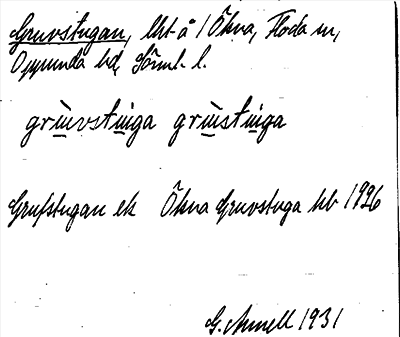 Gruvstugan, lht å 1 Öhna, Floda sn,
Oppunda hd, Södml. l.
grùvstu̲ga grùstu̲ga
Grufstugan ek Öhna Gruvstuga hb 1926
G. Annell 1931